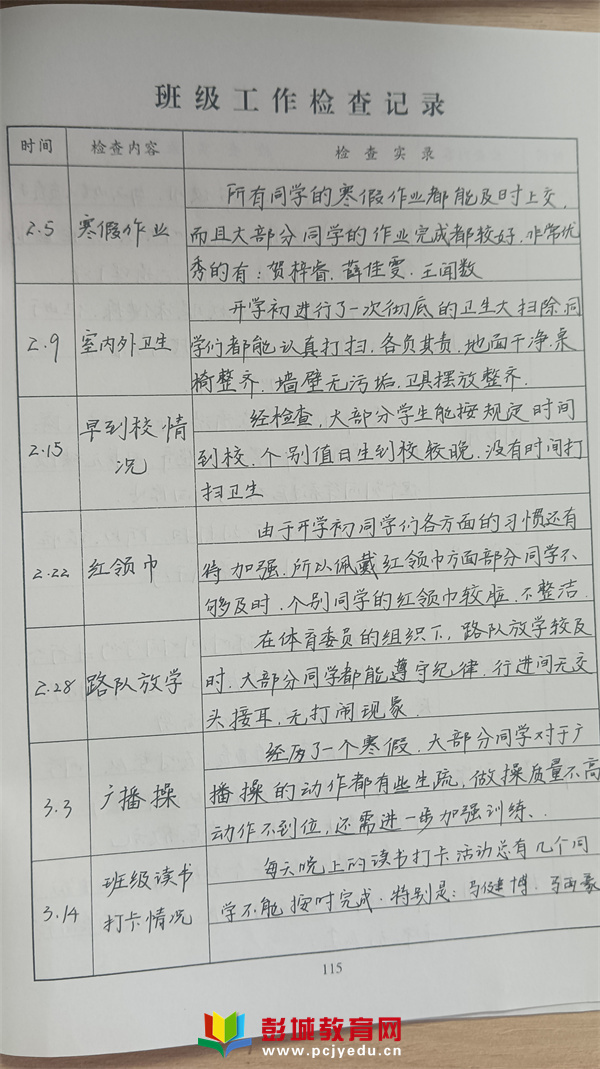 班级工作检查记录
时间 检查内容 检查实录
2.5 寒假作业
所有同学的寒假作业都能及时上交,
而且大部分同学的作业完成都较好.非常优
秀的有:贺梓睿.薛佳雯.王闻数
2.9 室内外卫生
开学初进行了一次彻底的卫生大扫除.同
学们都能认真打扫.各负其责.地面干净.桌
椅整齐.墙壁无污垢.卫具摆放整齐.
2.15 早到校情
况
经检查,大部分学生能按规定时间
到校.个别值日生到校较晚.没有时间打
扫卫生
2.22 红领巾
由于开学初同学们各方面的习惯还有
待加强.所以佩戴红领巾方面部分同学不
够及时.个别同学的红领巾较脏.不整洁.
2.28 路队放学
在体育委员的组织下,路队放学较及
时.大部分同学都能遵守纪律.行进间无交
头接耳.无打闹现象.
3.3 广播操
经历了一个寒假.大部分同学对于广
播操的动作都有些生疏,做操质量不高
动作不到位,还需进一步加强训练.
3.14 班级读书
打卡情况
每天晚上的读书打卡活动总有几个同
学不能按时完成.特别是:马健博.马
115
彭城教育网
www.pcjyedu.cn